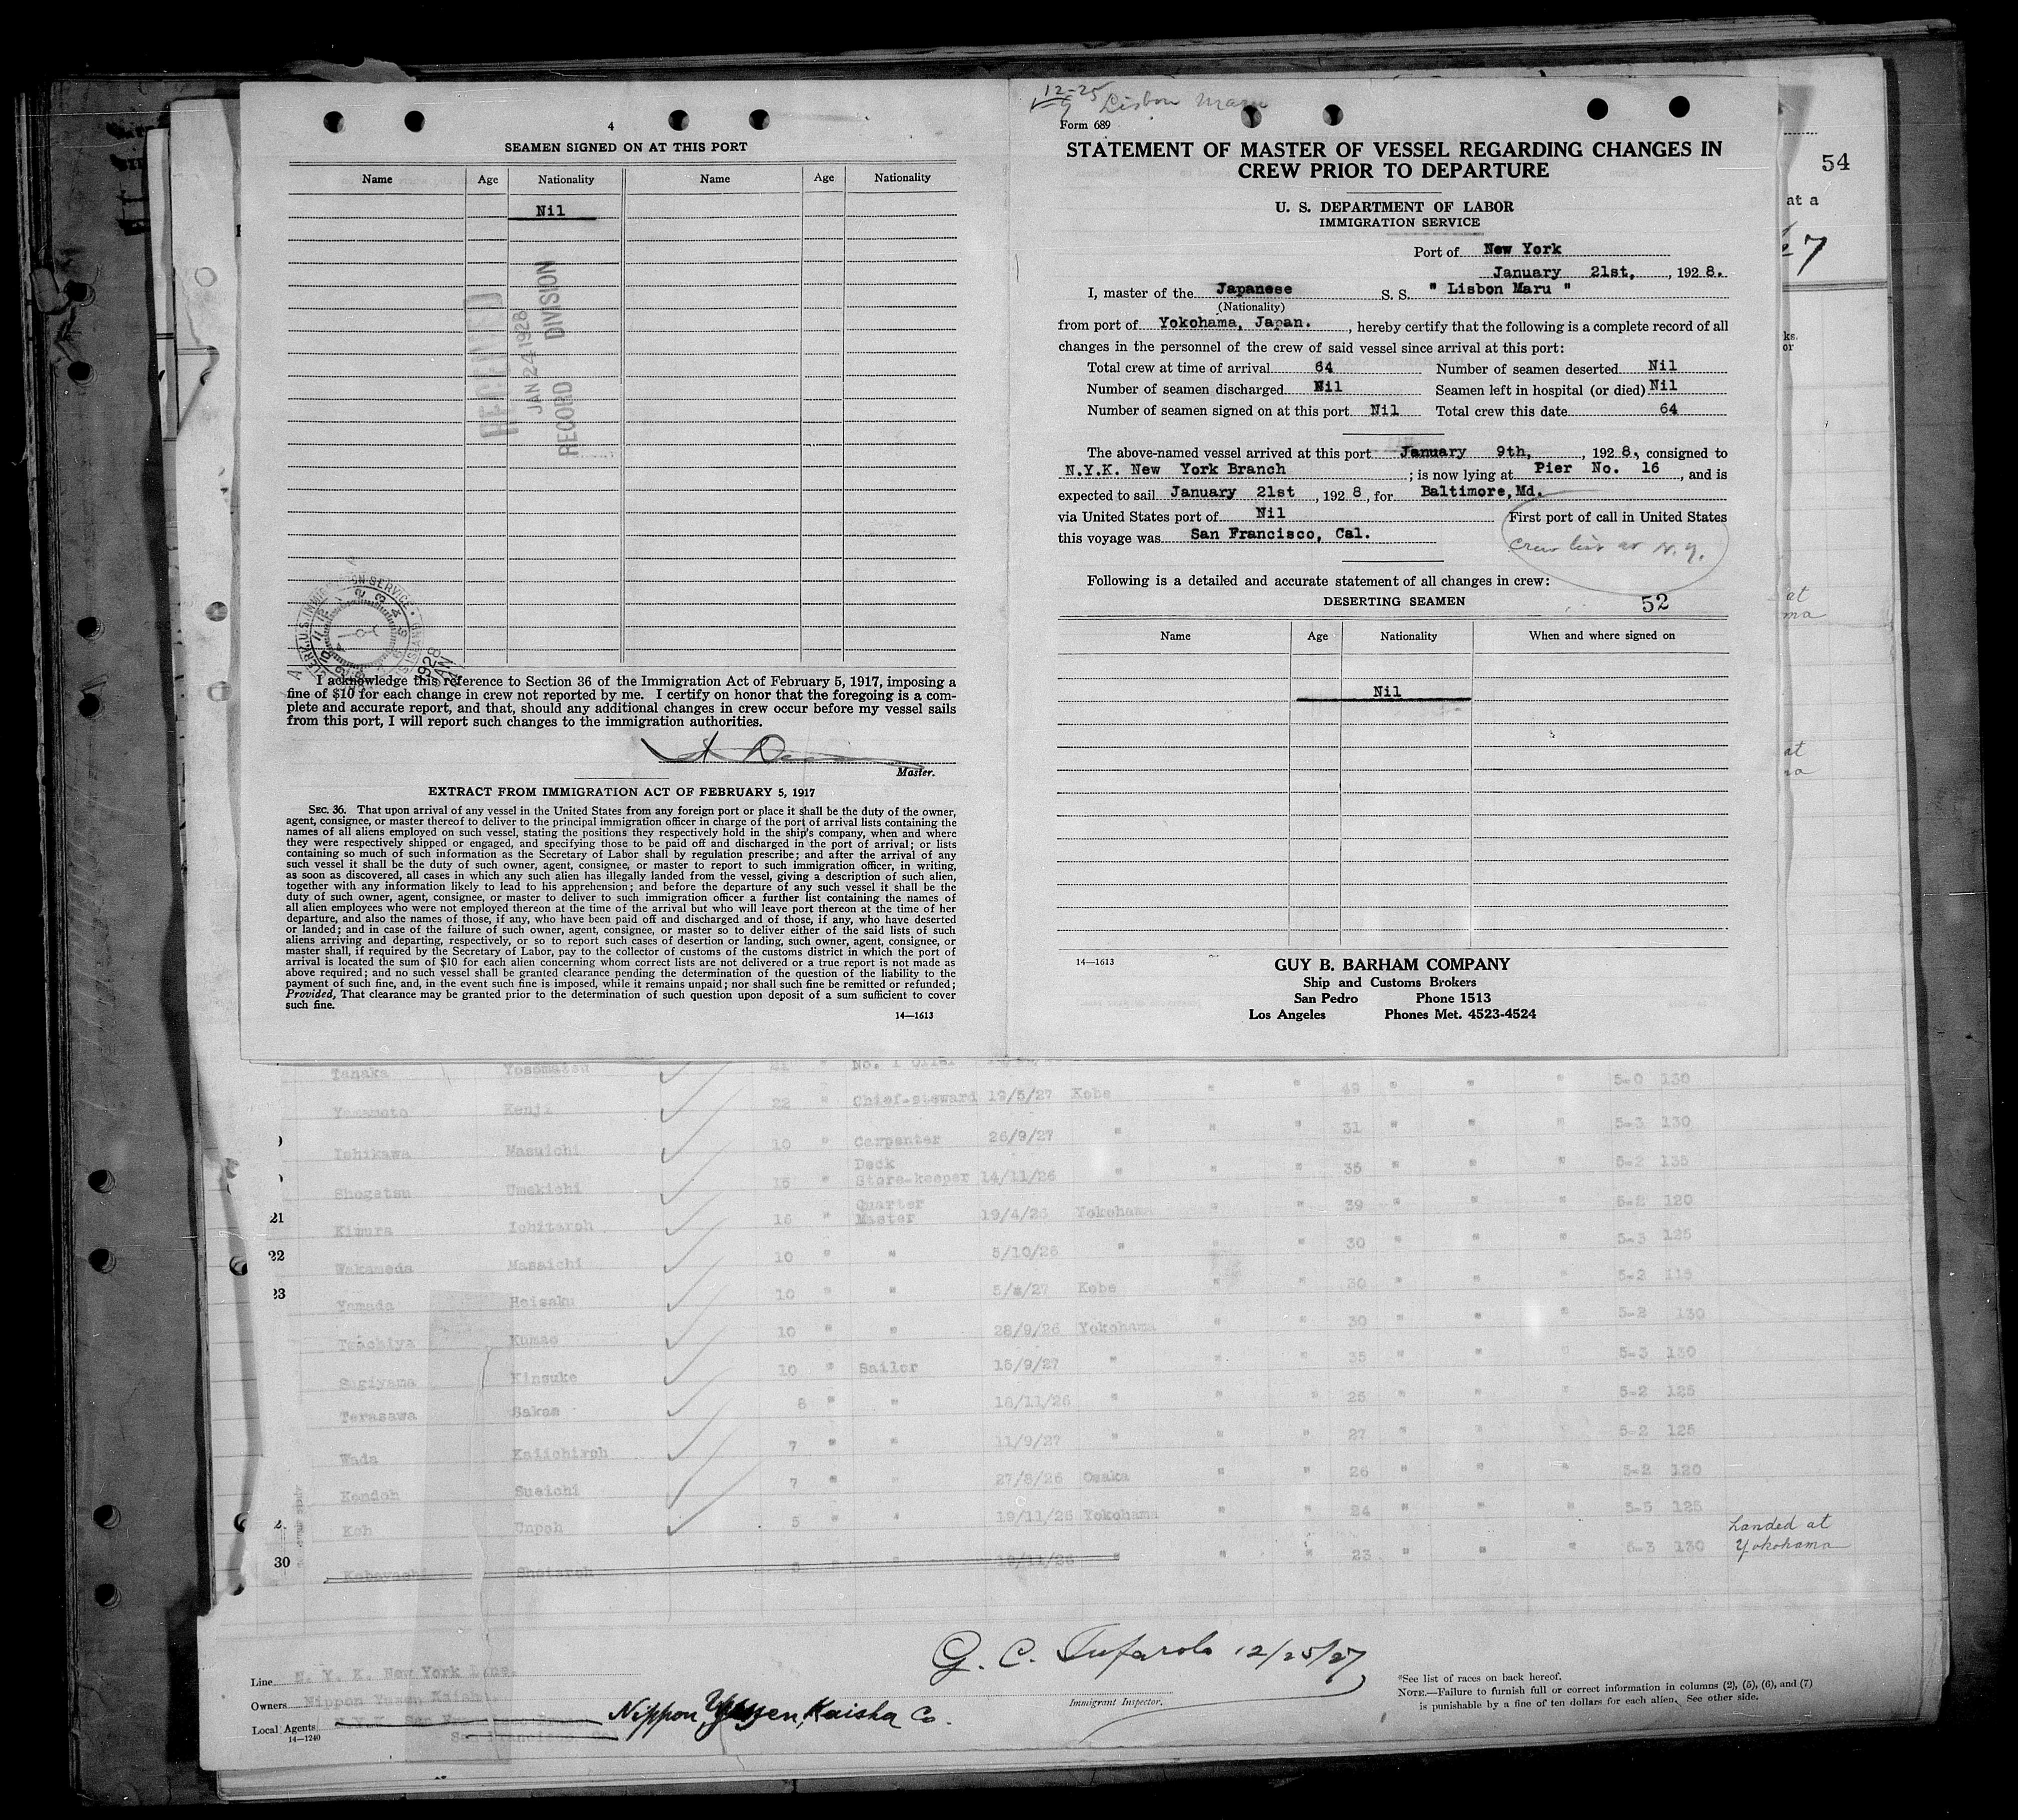 4
SEAMEN SIGNED ON AT THIS PORT
Name Age Nationality Name Age Nationality
Nil
RECEIVED
JAN 24 1928
RECORD DIVISION
I acknowledge this reference to Section 36 of the Immigration Act of February 5, 1917, imposing a
fine of $10 for each change in crew not reported by me. I certify on honor that the foregoing is a com-
plete and accurate report, and that, should any additional changes in crew occur before my vessel sails
from this port, I will report such changes to the immigration authorities.
Master.
EXTRACT FROM IMMIGRATION ACT OF FEBRUARY 5, 1917
SEC. 36. That upon arrival of any vessel in the United States from any foreign port or place it shall be the duty of the owner,
agent, consignee, or master thereof to deliver to the principal immigration officer in charge of the port of arrival lists containing the
names of all aliens employed on such vessel, stating the positions they respectively hold in the ship's company, when and where
they were respectively shipped or engaged, and specifying those to be paid off and discharged in the port of arrival; or lists
containing so much of such information as the Secretary of Labor shall by regulation prescribe; and after the arrival of any
such vessel it shall be the duty of such owner, agent, consignee, or master to report to such immigration officer, in writing,
as soon as discovered, all cases in which any such alien has illegally landed from the vessel, giving a description of such alien,
together with any information likely to lead to his apprehension; and before the departure of any such vessel it shall be the
duty of such owner, agent, consignee, or master to deliver to such immigration officer a further list containing the names of
all alien employees who were not employed thereon at the time of the arrival but who will leave port thereon at the time of her
departure, and also the names of those, if any, who have been paid off and discharged and of those, if any, who have deserted
or landed; and in case of the failure of such owner, agent, consignee, or master so to deliver either of the said lists of such
aliens arriving and departing, respectively, or so to report such cases of desertion or landing, such owner, agent, consignee, or
master shall, if required by the Secretary of Labor, pay to the collector of customs of the customs district in which the port of
arrival is located the sum of $10 for each alien concerning whom correct lists are not delivered or a true report is not made as
above required; and no such vessel shall be granted clearance pending the determination of the question of the liability to the
payment of such fine, and, in the event such fine is imposed, while it remains unpaid; nor shall such fine be remitted or refunded;
Provided, That clearance may be granted prior to the determination of such question upon deposit of a sum sufficient to cover
such fine.
14—1613
12-25
1-9 Lisbon Maru
Form 689
STATEMENT OF MASTER OF VESSEL REGARDING CHANGES IN
CREW PRIOR TO DEPARTURE
U. S. DEPARTMENT OF LABOR
IMMIGRATION SERVICE
Port of New York
January 21st, , 1928.
I, master of the Japanese S. S. " Lisbon Maru "
(Nationality)
from port of Yokohama, Japan. , hereby certify that the following is a complete record of all
changes in the personnel of the crew of said vessel since arrival at this port:
Total crew at time of arrival 64 Number of seamen deserted Nil
Number of seamen discharged Nil Seamen left in hospital (or died) Nil
Number of seamen signed on at this port Nil Total crew this date 64
The above-named vessel arrived at this port January 9th, , 1928, consigned to
N.Y.K. New York Branch ; is now lying at Pier No. 16 , and is
expected to sail January 21st , 1928, for Baltimore, Md.
via United States port of Nil First port of call in United States
this voyage was San Francisco, Cal.
Crew list at N.Y.
Following is a detailed and accurate statement of all changes in crew:
DESERTING SEAMEN 52
Name Age Nationality When and where signed on
Nil
14—1613
GUY B. BARHAM COMPANY
Ship and Customs Brokers
San Pedro Phone 1513
Los Angeles Phones Met. 4523-4524
54
at a
27
ks.
or
at
ma
at
ma
Tanaka Yosomatsu 21 " No. 1 Oiler
Yamamoto Kenji 22 " Chief-steward 19/5/27 Kobe " " 49 " " " 5-0 130
Ishikawa Masuichi 10 " Carpenter 26/9/27 " " " 31 " " " 5-3 130
Shogatsu Umekichi 15 " Deck Store-keeper 14/11/26 " " " 35 " " " 5-2 135
21 Kimura Ichitaroh 16 " Quarter Master 19/4/26 Yokohama " " 39 " " " 5-2 120
22 Wakameda Masaichi 10 " " 5/10/26 " " " 30 " " " 5-3 125
23 Yamada Heisaku 10 " " Kobe " " 30 " " " 5-2 115
Tsuchiya Kumao 10 " " 28/9/26 Yokohama " " 30 " " " 5-2 130
Sugiyama Kinsuke 10 " Sailor 15/9/27 " " " 35 " " " 5-3 130
Terasawa Sakae 8 " " 18/11/26 " " " 25 " " " 5-2 125
Wada Kaiichiroh 7 " " 11/9/27 " " " 27 " " " 5-2 125
Kondoh Sueichi 7 " " 27/8/26 Osaka " " 26 " " " 5-2 120
Koh Unpoh 5 " " 19/11/26 Yokohama " " 24 " " " 5-5 125
30 Kobayashi Shoiaroh " " " " " 23 " " " 5-3 130 Landed at
Yokohama
G. C. Tufarolo 12/25/27
Immigrant Inspector.
Line N. Y. K. New York Line.
Owners Nippon Yusen Kaisha
Local Agents N.Y.K. San Francisco Branch
San Francisco Cal
Nippon Yusen Kaisha Co.
14—1240
*See list of races on back hereof.
NOTE.—Failure to furnish full or correct information in columns (2), (5), (6), and (7)
is punishable by a fine of ten dollars for each alien. See other side.